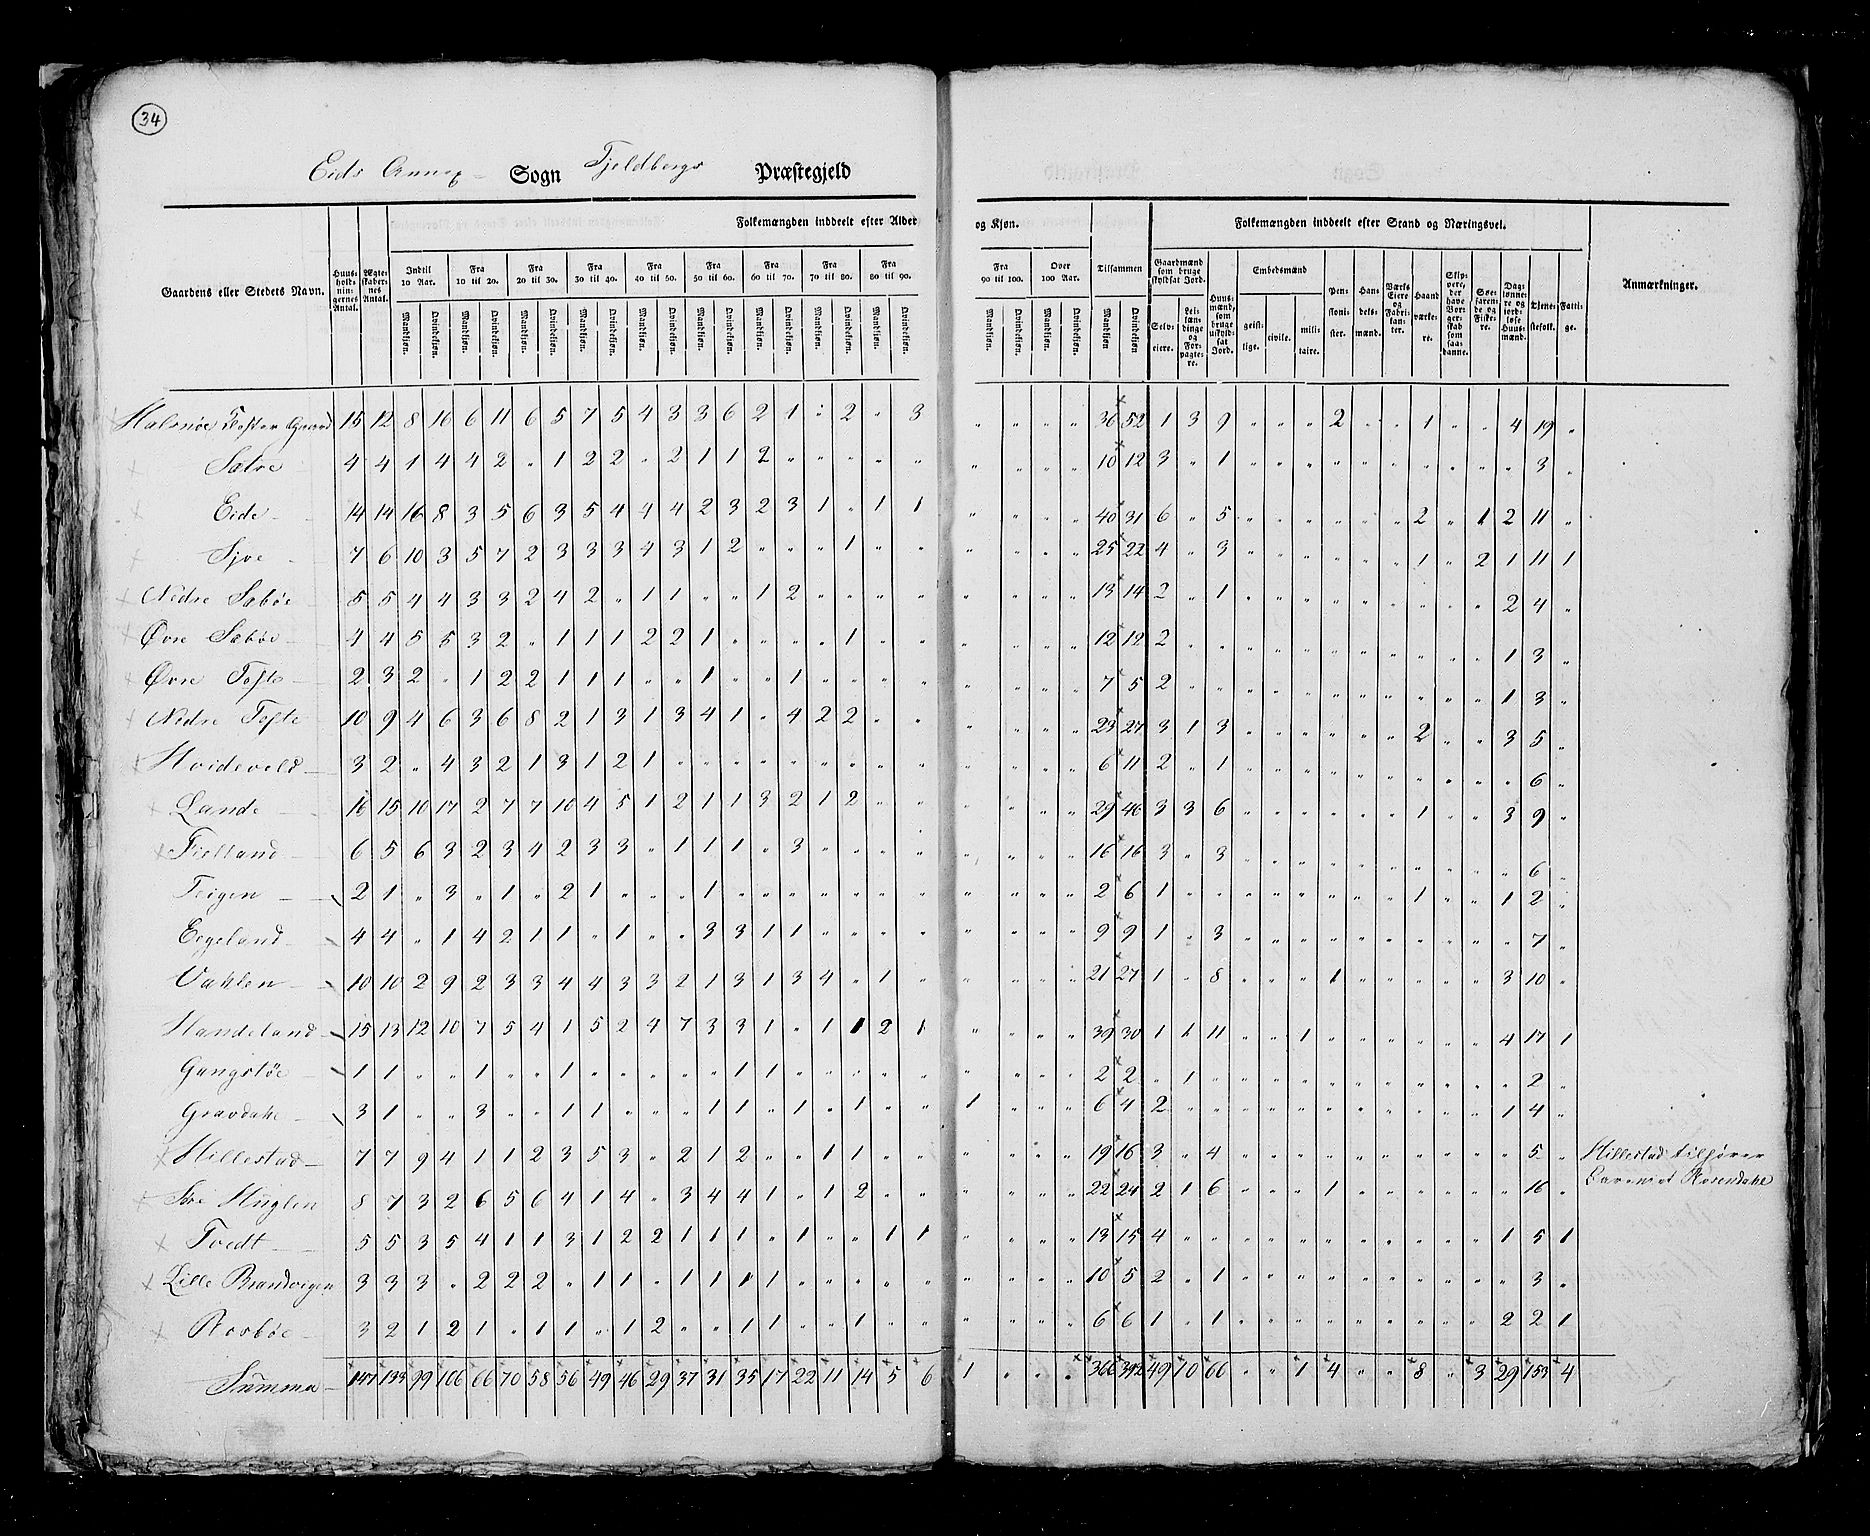 34
Eids Annex Sogn Fjeldbergs Præstegjeld
Folkemængden inddeelt efter Alder og Kjøn. Folkemængden inddeelt efter Stand og Næringsvei.
Gaardens eller Stedets Navn. Huus-holdnin-gernes Antal. Ægte-skaber-nes Antal. Indtil 10 Aar. Fra 10 til 20. Fra 20 til 30. Fra 30 til 40. Fra 40 til 50. Fra 50 til 60. Fra 60 til 70. Fra 70 til 80. Fra 80 til 90. Fra 90 til 100. Over 100 Aar. Tilsammen Gaardmænd som bruge skyldsat Jord. Huus-mænd, som bruge uskyld-sat Jord. Embedsmænd Pen-sioni-ster. Han-dels-mænd. Værks Eiere og Fabri-kan-ter. Haand værke-re. Skip-pere, der have Bor-ger-skab som saa-danne. Søe-faren-de og Fiske-re. Dag-lønne-re og jord-løse Huus-mænd. Tjene-stefolk. Fatti-ge. Anmærkninger.
Mandkjøn. Qvindekjøn. Mandkjøn. Qvindekjøn. Mandkjøn. Qvindekjøn. Mandkjøn. Qvindekjøn. Mandkjøn. Qvindekjøn. Mandkjøn. Qvindekjøn. Mandkjøn. Qvindekjøn. Mandkjøn. Qvindekjøn. Mandkjøn. Qvindekjøn. Mandkjøn. Qvindekjøn. Mandkjøn. Qvindekjøn. Mandkjøn Qvindekjøn. Selv-eiere. Lei-læn-dinge og For-pagte-re. geist-lige. civile. mili-taire.
Halsnøe Closter Gaard 15 12 8 16 6 11 6 5 7 5 4 3 3 6 2 1 " 2 " 3 " " " " 36 52 1 3 9 " " " 2 " " 1 " " 4 19 "
Sætre 4 4 1 4 4 2 " 1 2 2 " 2 1 1 2 " " " " " " " " " 10 12 3 " 1 " " " " " " " " " " 3 "
Eide 14 14 16 8 3 5 6 3 5 4 4 4 2 3 2 3 1 " 1 1 " " " " 40 31 6 " 5 " " " " " " 2 " 1 2 11 "
Sjoe 7 6 10 3 5 7 2 3 3 3 4 3 1 2 " " " 1 " " " " " " 25 22 4 " 3 " " " " " " 1 " 2 1 11 1
Nedre Sæbøe 5 5 4 4 3 3 2 4 2 " 1 1 " " 1 2 " " " " " " " " 13 14 2 " 1 " " " " " " " " " 2 4 "
Øvre Sæbøe 4 4 5 5 3 2 " 1 1 1 2 2 1 " " " " 1 " " " " " " 12 12 2 " " " " " " " " " " " 1 3 "
Øvre Tofte 2 3 2 " 1 2 2 1 1 1 " " 1 " " 1 " " " " " " " " 7 5 2 " " " " " " " " " " " 1 3 "
Nedre Tofte 10 9 4 6 3 6 8 2 1 3 1 3 4 1 " 4 2 2 " " " " " " 23 27 3 1 3 " " " " " " 2 " " 3 5 "
Hvidevold 3 2 " 4 3 2 1 3 1 2 1 " " " " " " " " " " " " " 6 11 2 " 1 " " " " " " " " " " 6 "
Lande 16 15 10 17 2 7 7 10 4 5 1 2 1 1 3 2 1 2 " " " " " " 29 46 3 3 6 " " " " " " 1 " " 3 9 "
Fielland 6 5 6 3 2 3 4 2 3 3 " 1 1 1 " 3 " " " " " " " " 16 16 3 " 3 " " " " " " " " " " 6 "
Teigen 2 1 " 3 " 1 " 2 1 " " " 1 " " " " " " " " " " " 2 6 1 " " " " " " " " 1 " " 1 2 "
Eegeland 4 4 " 1 4 2 1 1 " 1 " " 3 3 1 1 " " " " " " " " 9 9 1 " 3 " " " " " " " " " " 7 "
Vahlen 10 10 2 9 2 3 3 4 4 3 3 2 1 3 1 3 4 " 1 " " " " " 21 27 1 " 8 " " " 1 " " " " " 3 10 "
Handeland 15 13 12 10 7 5 4 1 5 2 4 7 3 3 1 " 1 1 2 1 " " " " 39 30 1 1 11 " " 1 " " " " " " 4 17 1
Gangstøe 1 1 " " 1 " " 1 " " " " " 1 1 " " " " " " " " " 2 2 " 1 " " " " " " " " " " 2 "
Gravdahl 3 1 " " 3 " " 1 1 " " " 1 1 " 1 " 1 " " 1 " " " 6 4 2 " " " " " " " " " " " 1 4 "
Hillestad 7 7 9 4 1 1 2 3 5 3 " 2 1 2 " " 1 1 " " " " " " 19 16 3 " 4 " " " " " " " " " " 5 " Hillestad tilhører
Baroniet Rosendahl
Søre Huglen 8 7 3 2 6 5 6 4 1 4 " 3 4 4 1 " 1 2 " " " " " " 22 24 2 1 6 " " " 1 " " " " " " 16 "
Tvedt 5 5 3 5 4 1 1 3 1 2 2 1 1 1 " 1 " " 1 1 " " " " 13 15 4 " " " " " " " " " " " 1 5 1
Lille Brandvigen 3 3 3 " 2 2 2 " 1 1 " 1 1 1 1 " " " " " " " " " 10 5 2 " 1 " " " " " " " " " " 3 "
Rosbøe 3 2 1 2 1 " 1 1 " 1 2 " " 1 1 " " 1 " " " " " " 6 6 1 " 1 " " " " " " " " " 2 2 1
Summa 147 133 99 106 66 70 58 56 49 46 29 37 31 35 17 22 11 14 5 6 1 " " " 366 392 49 10 66 " " 1 4 " " 8 " 3 29 153 4